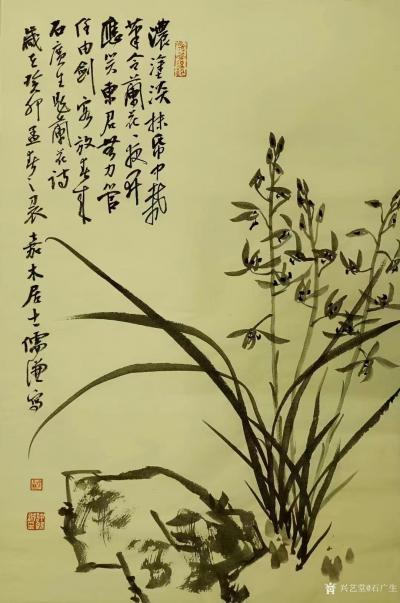 濃塗淡抹帋中栽
筆含蘭花一夜開
應笑東君無力管
任由劍客放春來
石廣生題蘭花詩
歲在癸卯孟春之晨嘉木居士儒谦寫
兴艺堂@石广生